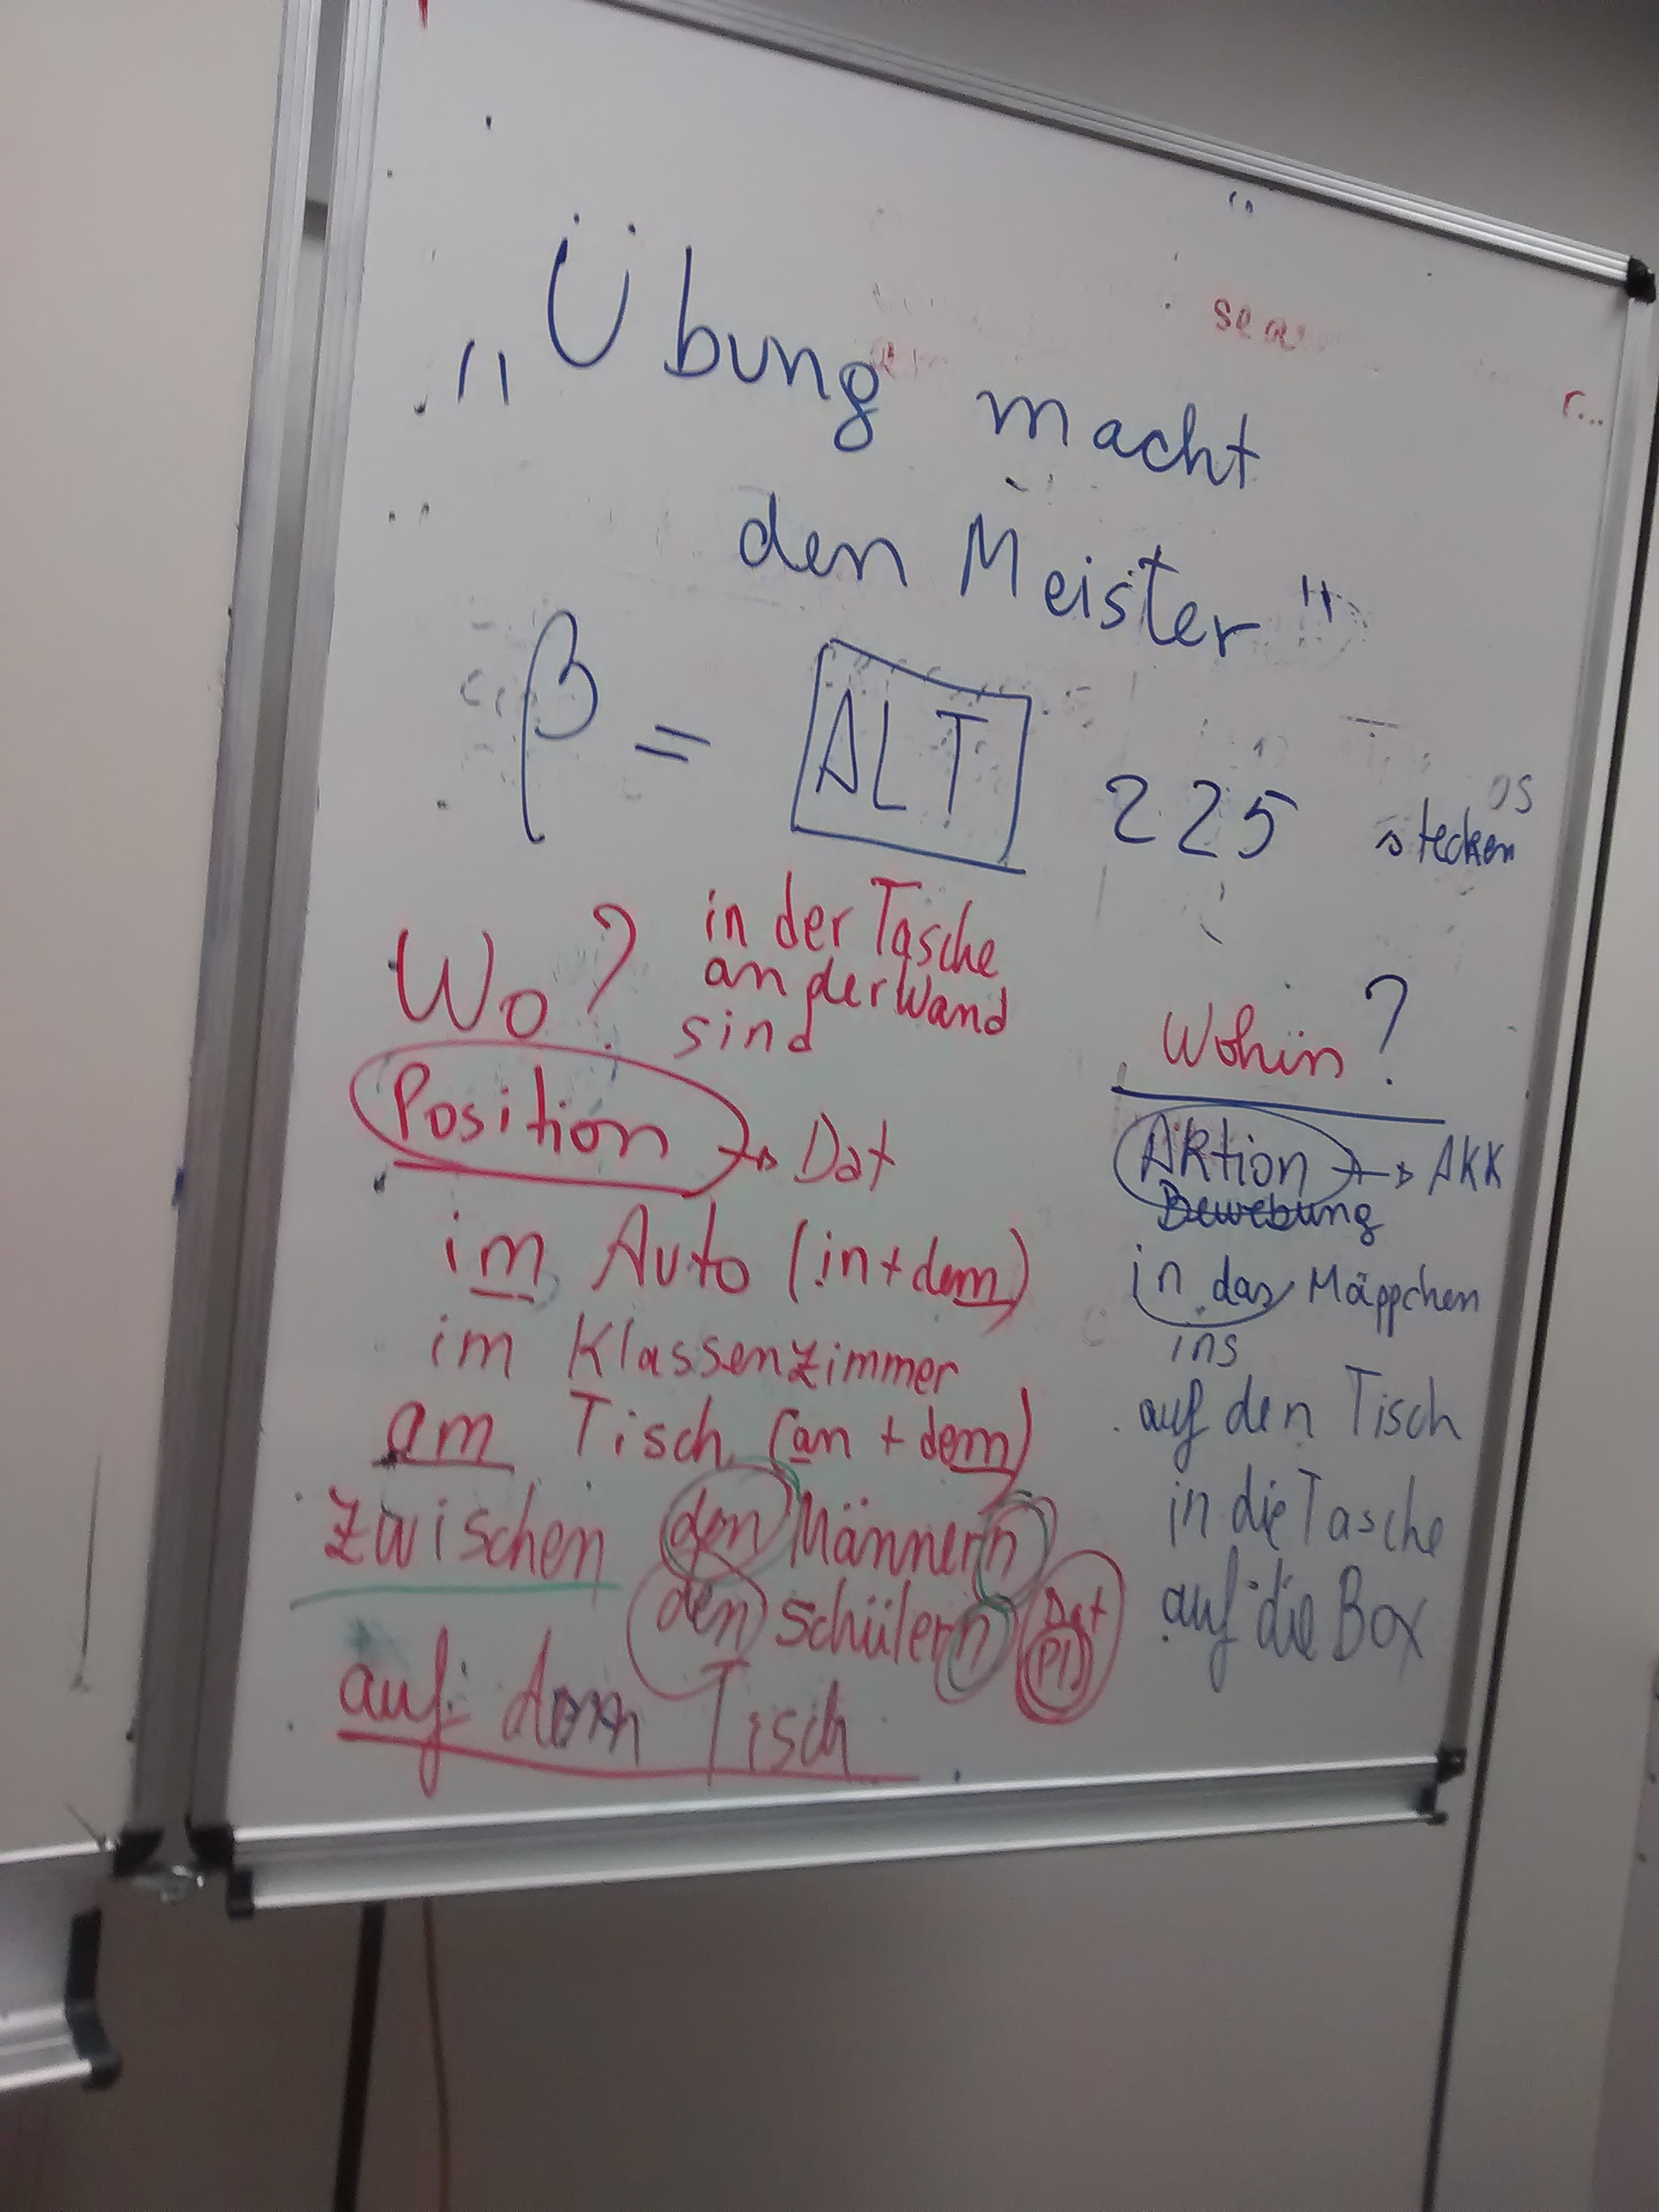 „Übung macht
den Meister"
β = ALT 225
stecken
Wo?
in der Tasche
an der Wand
sind
Position → Dat
im Auto (in + dem)
im Klassenzimmer
am Tisch (an + dem)
zwischen den Männern
den Schülern Dat
Pl
auf dem Tisch
Wohin?
Aktion → AKK
Bewebung
in das Mäppchen
ins
auf den Tisch
in die Tasche
auf die Box